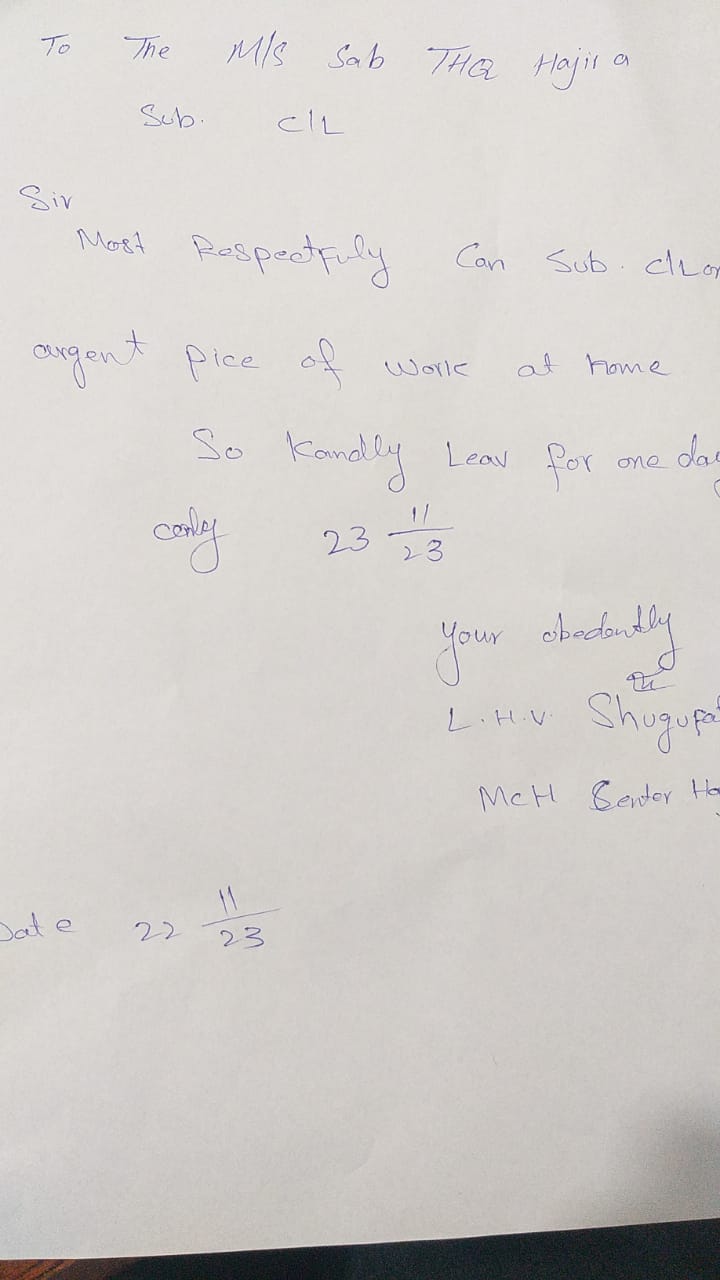 To The M/S Sab THQ Hajira
Sub. C/L
Sir
Most Respectfuly Can Sub. C/L on
argent pice of work at home
So Kandly Leav for one day
only 23 11/23
your obedantly
L.H.V. Shugufa
McH Center Ha
Date 22 11/23